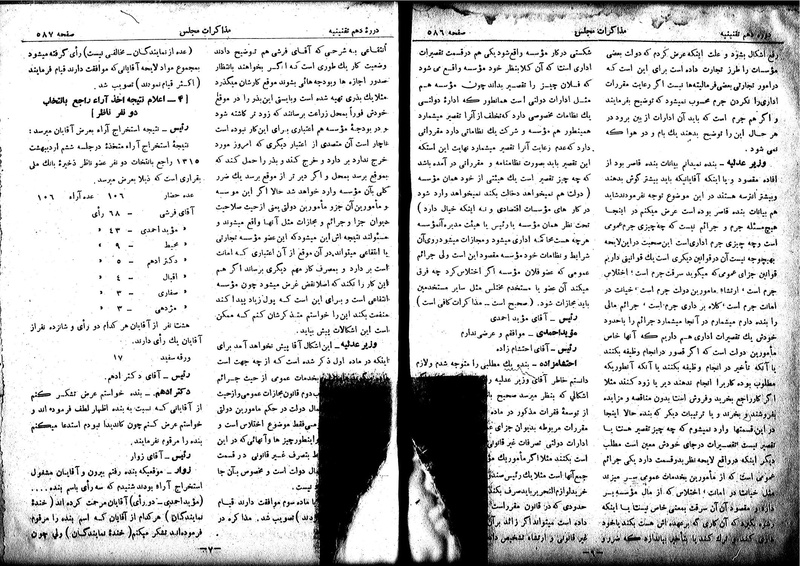 دورهٔ دهم تقنینیه مذاکرات مجلس صفحه ۵۸۶
رفع اشکال بشود و علت اینکه عرض کردم که دولت بعضی
مؤسسات را طرز تجارت داده است برای این است که
در امور تجارتی بعضی فرمالیته‌ها نیست اگر رعایت مقررات
اداری را نکردن جرم محسوب نمیشود که توضیح بفرمایند
و اگر هم جرم است که باید آن ادارات از بین برود در
هر حال این را توضیح بدهند یک بام و دو هوا که
نمی شود.
وزیر عدلیه - بنده نمیدانم بیانات بنده قاصر بود از
افاده مقصود و یا اینکه آقایانیکه باید بیشتر گوش بدهند
وبیشتر آنترسه هستند در این موضوع توجه نفرمودند شاید
هم بیانات بنده قاصر بوده است عرض میکنم در اینجا
هیچ مسئله جرم و جرائم نیست که چه چیزی جرم عمومی
است وچه چیزی جرم اداری است این صحبت در این لایحه
بهیچوجه نیست آن در قوانین دیگری است یک قوانینی داریم
قوانین جزای عمومی که میگوید سرقت جرم است، اختلاس
جرم است، ارتشاء مأمورین دولت جرم است، خیانت در
امانت جرم است، کلاه برداری جرم است، جرائم مالی
را بنده دارم میشمارم در آنجا میشمارد جرائم را با حدود
خودش یک تقصیرات اداری هم داریم که آنها خاص
مأمورین دولت است که اگر قصور در انجام وظیفه بکنند
یا آنکه تأخیر در انجام وظیفه بکنند یا آنکه آنطوریکه
مطلوب بوده کار را انجام ندهند دیر یا زود کنند مثلا
اگر کار راجع بخرید وفروش است بدون مناقصه و مزایده
بفروشند و بخرند و یا ترتیبات دیگر که بنده حالا اینجا
در این قسمتها وارد نمیشوم که چه چیز تقصیر هست یا
تقصیر نیست تقصیرات در جای خودش معین است مطلب
دیگر اینکه در واقع لایحه نظر بدو قسمت دارد یکی جرائم
عمومی است که از مأمورین بخدمات عمومی سر میزند
مثل خیانت در امانت، اختلاس که از مال مؤسسه بر
دارد و مقصود آن آن سرقت بمعنی خاص نیست یا اینکه
شکستی در کار مؤسسه واقع شود یکی هم در قسمت تقصیرات
اداری است که آن کلا بنظر خود مؤسسه واقع می شود
که فلان چیز را تقصیر بداند چون مؤسسه هم
مثل ادارات دولتی است همانطور که ادارهٔ دولتی
یک نظامات مخصوصی دارد که تخلف از آنرا تقصیر میشمارد
همینطور هم مؤسسه و شرکت یک نظاماتی دارد مقرراتی
دارد که عدم رعایت آنرا تقصیر میشمارد نهایت این استکه
این تقصیر باید بصورت نظامنامه و مقرراتی در آمده باشد
که چه چیز تقصیر است یک هیئتی از خود همان مؤسسه
(دولت هم نمیخواهد دخالت بکند نمیخواهد وارد شود
در کار های مؤسسات اقتصادی و نه اینکه خیال دارد)
تحت نظر همان مؤسسه با رئیس یا هیئت مدیره آنمؤسسه
هر چه هست محاکمه اداری میشود ومجازات میشود در روی آن
شرایط و نظامات خود مؤسسه مقصود این است ولی جرائم
عمومی که عضو فلان مؤسسه اگر اختلاس کرد چه فرق
میکند آن عضو یا مستخدم مختلس مثل سایر مستخدمین
باید مجازات شود. (صحیح است - مذاکرات کافی است)
رئیس - آقای مؤید احمدی
مؤید احمدی - موافقم و عرضی ندارم
رئیس - آقای احتشام زاده
احتشام زاده - بنده یک مطلبی را متوجه شدم ولازم
دانستم خاطر آقای وزیر عدلیه
اشکالی که بنظر میرسد صحیح
از توسعه فقرات مذکور در ماده
مقررات مربوطه بدیوان جزای
ادارات دولتی تصرفات غیر قانونی
است مثلا اگر مأمور یک
جمع آنها است مثلا یک رئیس
خرید لوازم التحریر باید صرف بکند
حدودی که در قانون مقرر است
داده است میتواند اگر زائد بر آن
غیر قانونی و ارتشاء تشخیص
-۶-
دورهٔ دهم تقنینیه مذاکرات مجلس صفحه ۵۸۷
انتفاعی به شرحی که آقای فرشی هم توضیح دادند
وضعیت کار یک طوری است که اگر بخواهند بانتظار
صدور اجازه ها وبودجه هائی بشوند موقع کارشان میگذرد
مثلا یک بذری تهیه شده است وبایستی این بذر را در موقع
خودش فوراً بمحل زراعت برسانند که زود تر کاشته شود
و در بودجهٔ مؤسسه هم اعتباری و برای این کار نبوده است
ناچار است آن متصدی از اعتبار دیگری که امروز مورد
خرج ندارد بر دارد و خرج کند و بذر را حمل کند که
بموقع برسد بمحل و اگر دیر تر از موقع برسد یک ضرر
کلی بآن مؤسسه وارد خواهد شد حالا اگر این موسسه
و مأمورین آن جزو مأمورین دولتی یعنی از حیث صلاحیت
دیوان جزا وجرائم و مجازات مثل آنها واقع میشوند و
مسئولند نتیجه اش این میشود که این عضو مؤسسه تجارتی
یا انتفاعی میتواند در آن موقع از آن اعتباری که امانت
است بر دارد و بمصرف کار مهم دیگری برساند اگر هم
این کار را نکند که اصلا نقض غرض میشود چون مؤسسه
انتفاعی است و برای این است که پول زیاد پیدا کند
منفعت بکند این را خواستم متذکرشان کنم که ممکن
است این اشکالات پیش بیاید.
وزیر عدلیه - این اشکال آقا پیش نخواهد آمد برای
اینکه در ماده اول ذکر شده است که از چه جهت است
خدمات عمومی از حیث جرائم
دوم قانون مجازات عمومی وازحیث
مال دولت در حکم مامورین دولتی
فقط موضوع اختلاس است و
واینطور چیز ها وآنهائی که در این
بتصرف غیر قانونی در قسمت
مال دولت است و مخصوص بآن جا
نیست.
ماده سوم موافقت دارند قیام
) تصویب شد. مذاکره در
(عده از نمایندگان - مخالفی نیست) رأی گرفته میشود
بمجموع مواد لایحه آقایانی که موافقت دارند قیام فرمایند
(اکثر قیام نمودند) تصویب شد.
[۴ - اعلام نتیجه اخذ آراء راجع بانتخاب
دو نفر ناظر]
رئیس - نتیجه استخراج آراء بعرض آقایان میرسد:
نتیجهٔ استخراج آراء متخذه در جلسه ششم اردیبهشت
۱۳۱۵ راجع بانتخاب دو نفر عضو ناظر ذخیرهٔ بانک ملی
بقراری است که ذیلا بعرض میرسد.
عده حضار ۱۰۶ عده آراء ۱۰۶
آقای فرشی - ۶۸ رأی
» مؤید احمدی - ۴۳ »
» محیط - ۹ »
» دکتر ادهم - ۵ »
» اقبال - ۴ »
» صفاری - ۳ »
» مژدهی - ۳ »
هشت نفر از آقایان هر کدام دو رأی و شانزده نفر از
آقایان یک رأی دارند.
ورقه سفید ۱۷
رئیس - آقای دکتر ادهم.
دکتر ادهم - بنده خواستم عرض تشکر کنم
از آقایانی که نسبت به بنده اظهار لطف فرموده اند و
خواستم عرض کنم چون کاندیدا نبودم استدعا میکنم
بنده را مرقوم نفرمایند.
رئیس - آقای زوار
زوار - موقعیکه بنده رفتم بیرون و آقایان مشغول
استخراج آراء بودند شنیدم که سه رأی باسم بنده ....
(مؤید احمدی - دو رأی) آقایان مرحمت کرده اند (خندهٔ
نمایندگان) هر کدام از آقایان که اسم بنده را مرقوم
فرموده اند تشکر میکنم (خندهٔ نمایندگان) ولی چون
-۷-